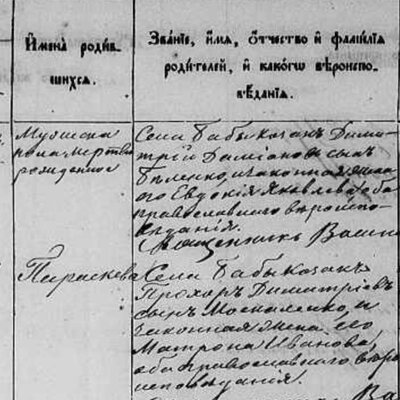 Имена родив-
шихся.
Званіе, имя, отчество и фамилія
родителей, и какого вѣроиспо-
вѣданія.
Мужеска
пола мертво
рожденное
Села Бабы козакъ Дими-
трій Даміановъ сынъ
и законная жена
его Евдокія Яковлева оба
православнаго вѣроиспо-
вѣданія.
Священникъ
Параскева
Села Бабы козакъ
Прохоръ Димитріевъ
сынъ Москаленко, и
законная жена его
Матрона Иванова,
оба православнаго вѣро
исповѣданія.